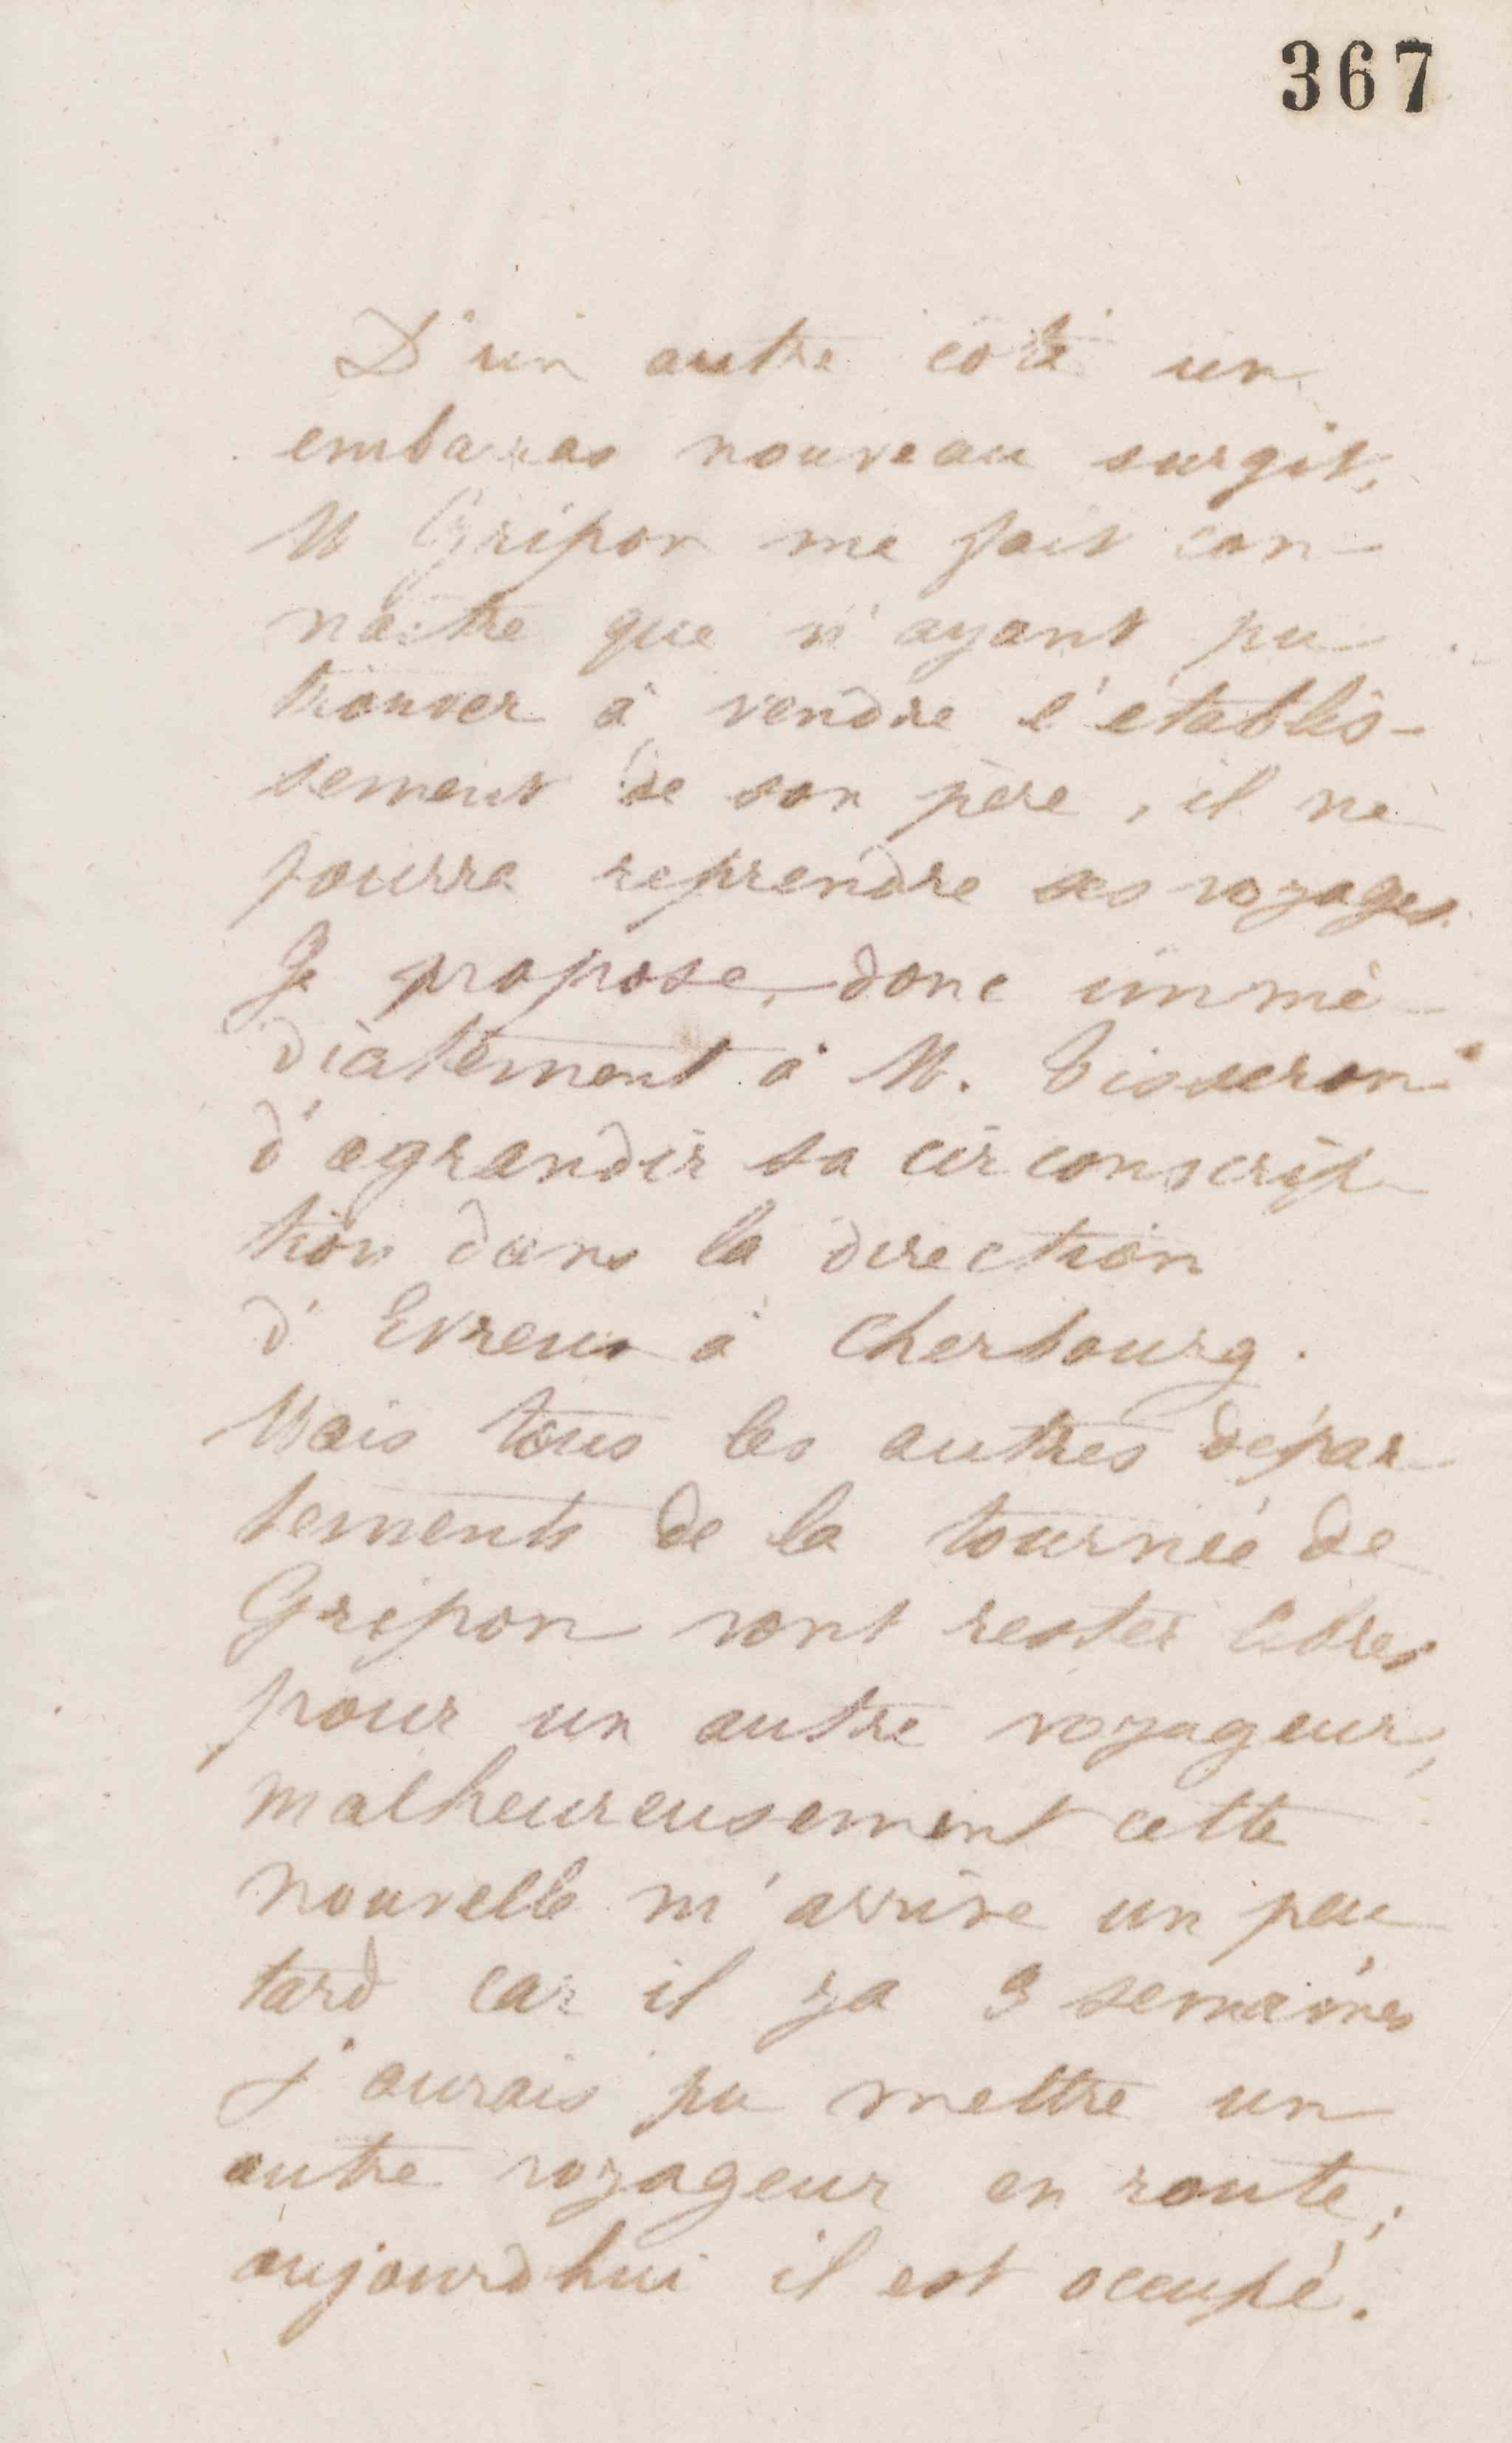 367
D'un autre côté un
embarras nouveau surgit,
M Gripon me fait con-
naitre que n'ayant pu
trouver à vendre l'établis-
sement de son père, il ne
pourra reprendre ses voyages.
Je propose donc immé-
diatement à M. Tisseron
d'agrandir sa circonscrip-
tion dans la direction
d'Evreux à Cherbourg.
Mais tous les autres dépar-
tements de la tournée de
Gripon vont rester libres
pour un autre voyageur,
malheureusement cette
nouvelle m'arrive un peu
tard car il y a 3 semaines
j'aurais pu mettre un
autre voyageur en route;
aujourd'hui il est occupé.